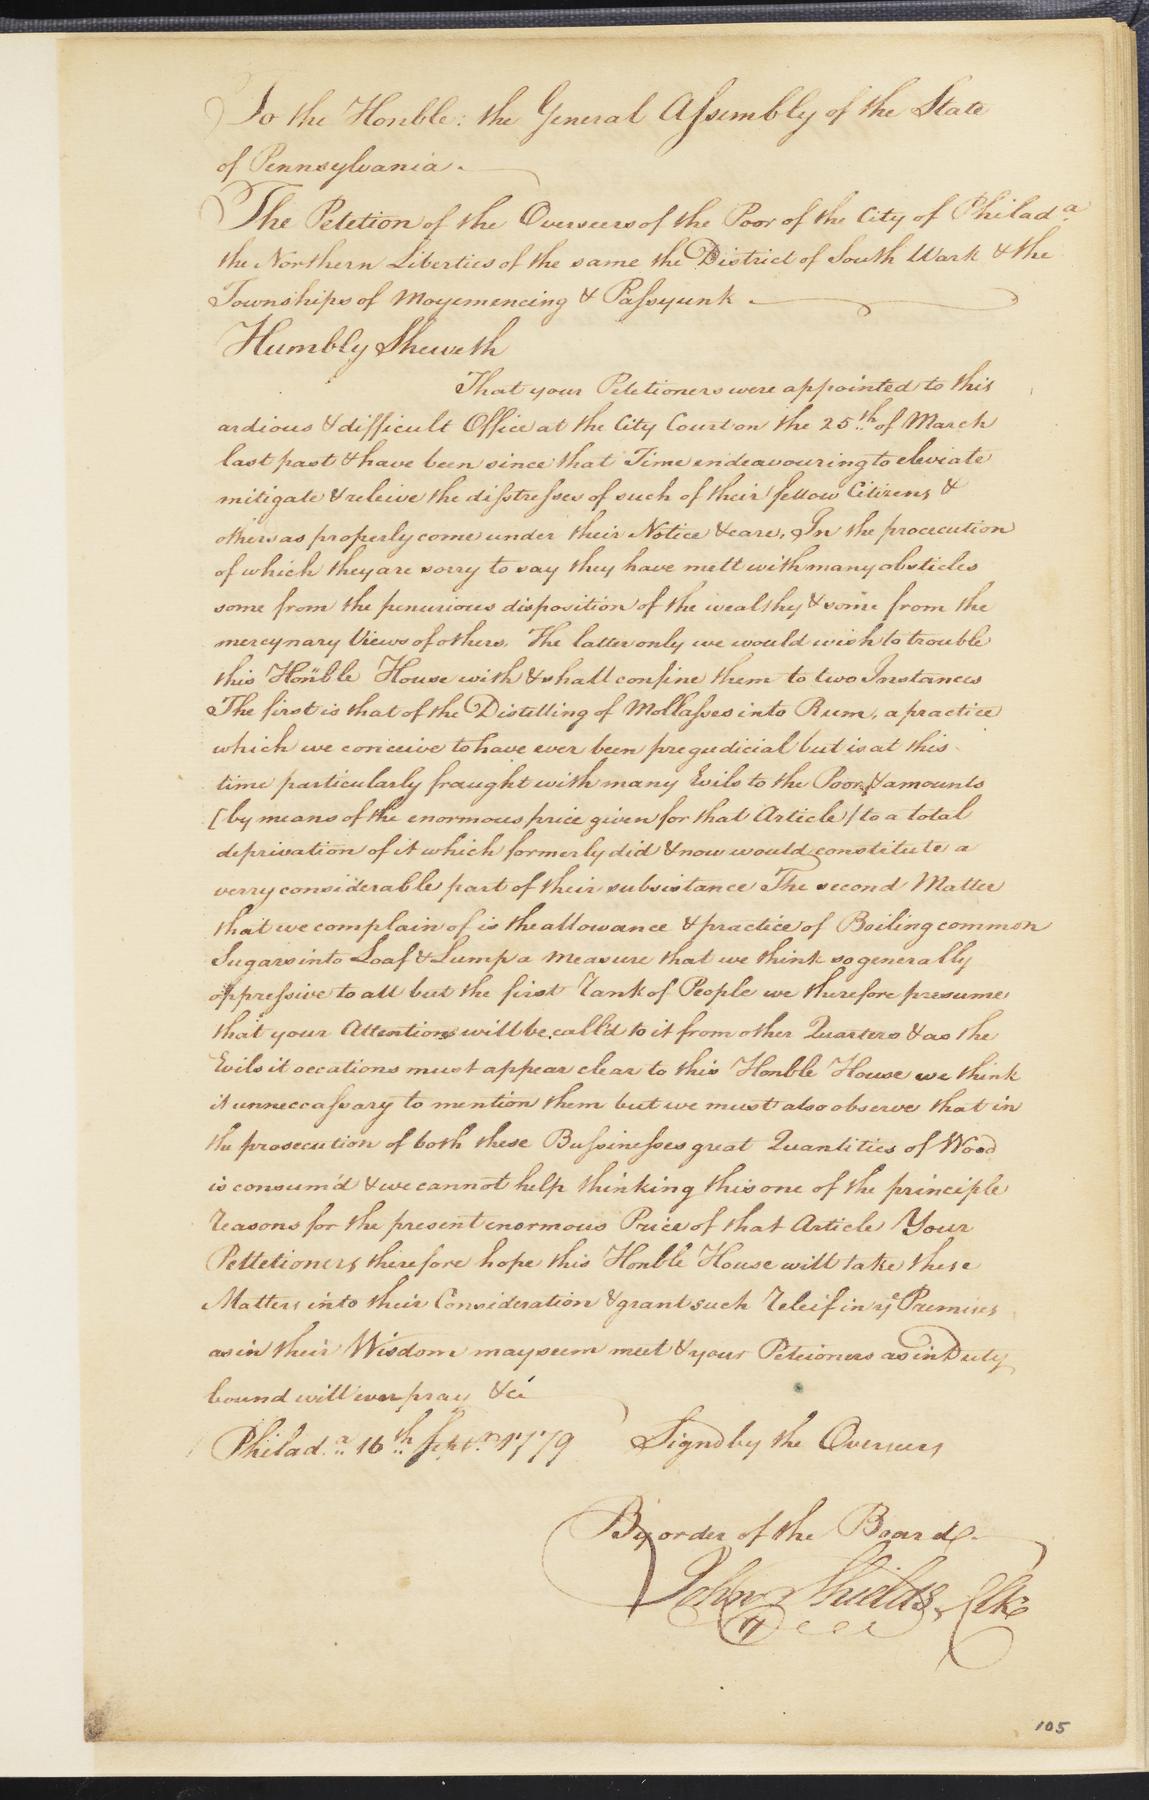 To the Honble: the General Assembly of the State
of Pennsylvania.
The Petetion of the Overseers of the Poor of the City of Philad.a
the Northern Liberties of the same the District of South Wark & the
Townships of Moyemencing & Passyunk
Humbly Sheweth
That your Petetioners were appointed to this
ardious & difficult Office at the City Court on the 25th of March
last past & have been since that Time endeavouring to eleviate
mitigate & releive the disstresses of such of their fellow Citizens &
others as properly come under their Notice & care, In the procecution
of which they are sorry to say they have mett with many obsticles
some from the penurious disposition of the wealthy & some from the
mercynary Views of others. The latter only we would wish to trouble
this Honble House with & shall confine them to two Instances
The first is that of the Distilling of Mollasses into Rum, a practice
which we conceive to have ever been pregudicial but is at this
time particularly fraught with many Evils to the Poor, & amounts
[by means of the enormous price given for that Article] to a total
deprivation of it which formerly did & now would constitute a
verry considerable part of their subsistance The second Matter
that we complain of is the allowance & practice of Boiling common
Sugars into Loaf & Lump a measure that we think so generally
oppressive to all but the first Rank of People we therefore presume
that your Attentions will be call'd to it from other Quarters & as the
Evils it occations must appear clear to this Honble House we think
it unneccassary to mention them but we must also observe that in
the prosecution of both these Bussinesses great Quantities of Wood
is consum'd & we cannot help thinking this one of the principle
reasons for the present enormous Price of that Article Your
Pettetioners therefore hope this Honble House will take these
Matters into their Consideration & grant such Releif in ye Premises
as in their Wisdom may seem meet & your Peteioners as in Duty
bound will ever pray &c
Philad.a 16th Sepr. 1779 Signd by the Overseers
By order of the Board
John Shields, Clk
105